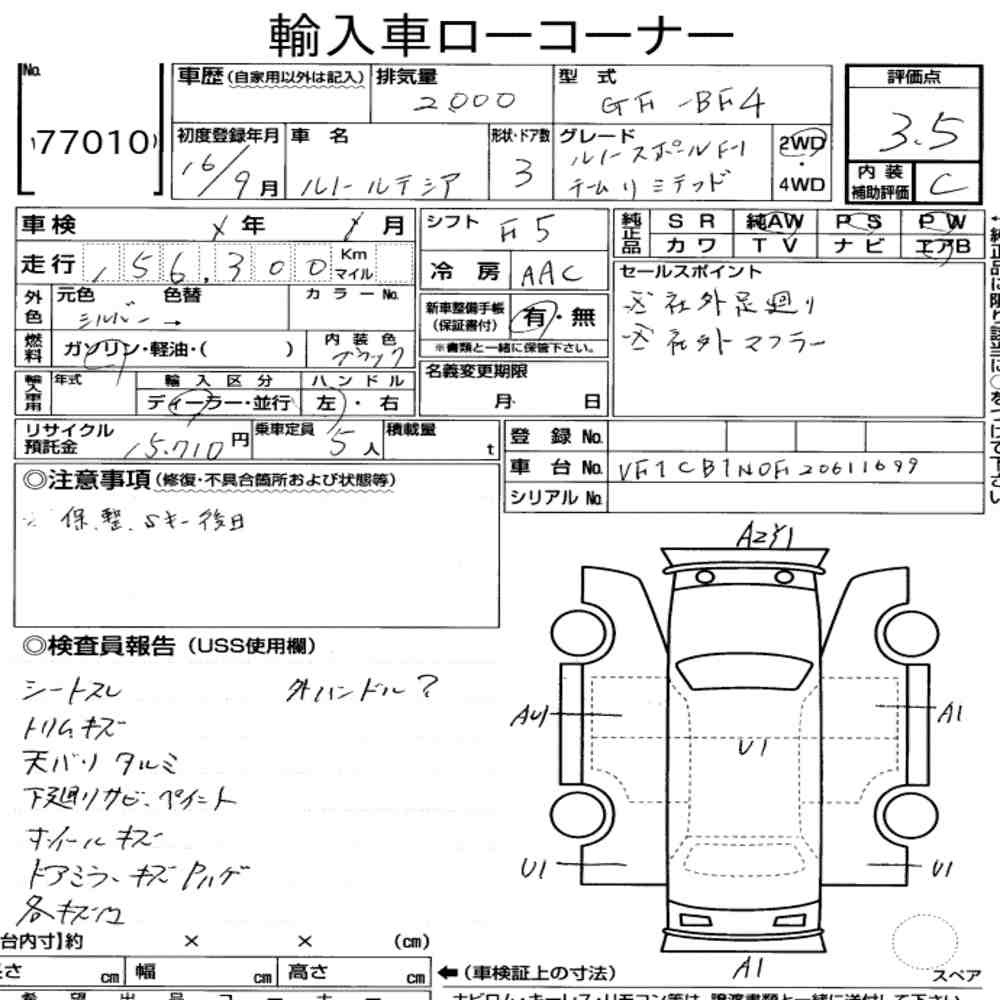 輸入車ローコーナー
No.
77010
車歴(自家用以外は記入)
排気量
2000
型式
GF-BF4
評価点
3.5
初度登録年月
16/9月
車名
ルノールテシア
形状・ドア数
3
グレード
ルノースポールF1
チームリミテッド
2WD
・
4WD
内装
補助評価
C
車検
年
月
走行
156,300
Km
マイル
シフト
F5
冷房
AAC
純正品
SR
純AW
PS
PW
カワ
TV
ナビ
エアB
外色
元色
色替
カラーNo.
シルバー→
新車整備手帳
(保証書付)
有・無
※書類と一緒に保管下さい。
セールスポイント
※社外足廻り
※社外マフラー
燃料
ガソリン・軽油・( )
内装色
ブラック
名義変更期限
月 日
輸入車用
年式
輸入区分
ハンドル
ディーラー・並行
左・右
リサイクル
預託金
15,710円
乗車定員
5人
積載量
t
登録No.
車台No.
VF1CB1N0F20611699
シリアルNo.
◎注意事項(修復・不具合箇所および状態等)
※保、整、Sキー後日
◎検査員報告(USS使用欄)
シートスレ
外ハンドル?
トリムキズ
天バリタルミ
下廻りサビ、ペイント
ホイールキズ
ドアミラーキズPハゲ
各キズ凹
A1
A1
U1
U1
U1
A1
台内寸】約 × × (cm)
cm
幅
cm
高さ
cm
←(車検証上の寸法)
スペア